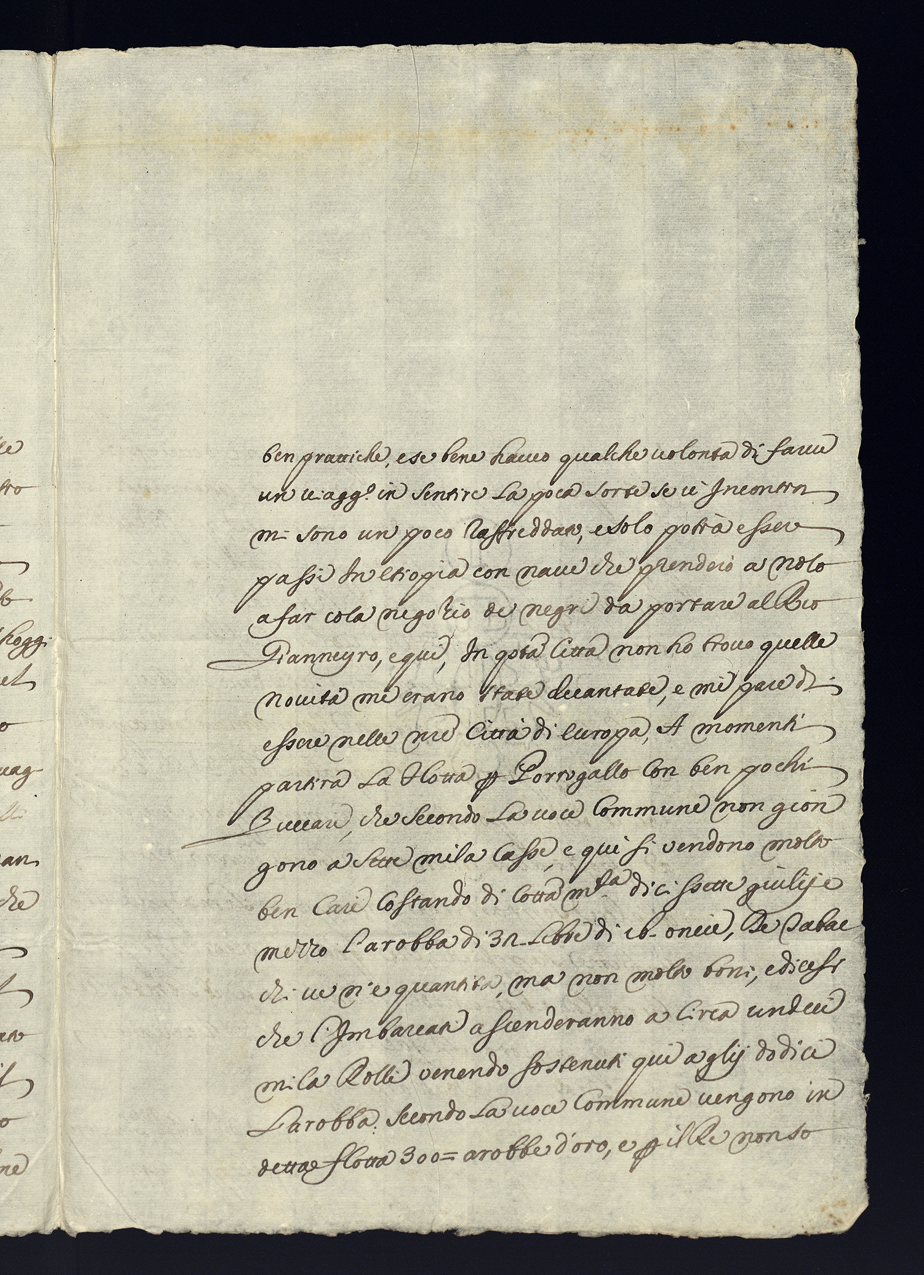 ben prattiche, e se bene haveo qualche volontà di farne
un viagg.º in sentire la poca sorte se vi Incontra
mi sono un poco raffreddato, e solo potrà essere
passi In Etiopia con nave che prenderò a nolo
a far colà negotio de negri da portare al Rio
Gianneyro, e qui, In qo̅ta Città non ho trovo quelle
novità mi erano state decantate, e mi pare di
essere nelle nr̅e Città di Europa, A momenti
partirà La Flotta ꝑ Portogallo Con ben pochi
Zuccari, che secondo La voce Commune non gion
gono a sette mila Casse, e qui si vendono molto
ben Cari Costando di Cottà mta dicissette giulij e
mezzo l'arobba di 32 Libre di 16 oncie, De Tabac
chi ve n'è quantità, ma non molto boni, e dicesi
che l'Imbarcati ascenderanno a Circa undeci
mila Rolli venendo sostenuti qui a glij dodici
L'arobba. Secondo La voce Commune vengono in
detta flotta 300= arobbe d'oro, e ꝑ il Re non so
tto
hogg:
el
o
uag
an
che
o
ne